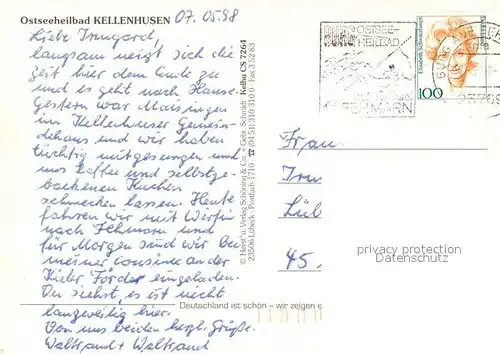 Ostseeheilbad KELLENHUSEN 07.05.98
Liebe Irmgard,
langsam neigt sich die
Zeit hier dem Ende zu
und es geht nach Hause.
Gestern war Maisingen
im Kellenhuser Gemein-
dehaus und wir haben
tüchtig mitgesungen und
uns Kaffee und selbstge-
backenen Kuchen
schmecken lassen. Heute
fahren wir mit
nach Fehmarn und
für Morgen sind wir bei
meiner Cousine an der
Kieler Förde eingeladen.
Du siehst, es ist nicht
langweilig hier.
Von uns beiden herzl. Grüße.
Waltraud + Waltraud
© Horst u. Verlag Schöning & Co. + Gebr. Schmidt Kelhu CS 7264
23506 Lübeck · Postfach 1710 · ☎ (0451) 310 310 · Fax 3 62 83
BURG OSTSEE-
HEILBAD
FEHMARN
Deutsche Bundespost
100
BURG
23769
Frau
Irm
Lüb
45.
privacy protection
Datenschutz
Deutschland ist schön – wir zeigen e